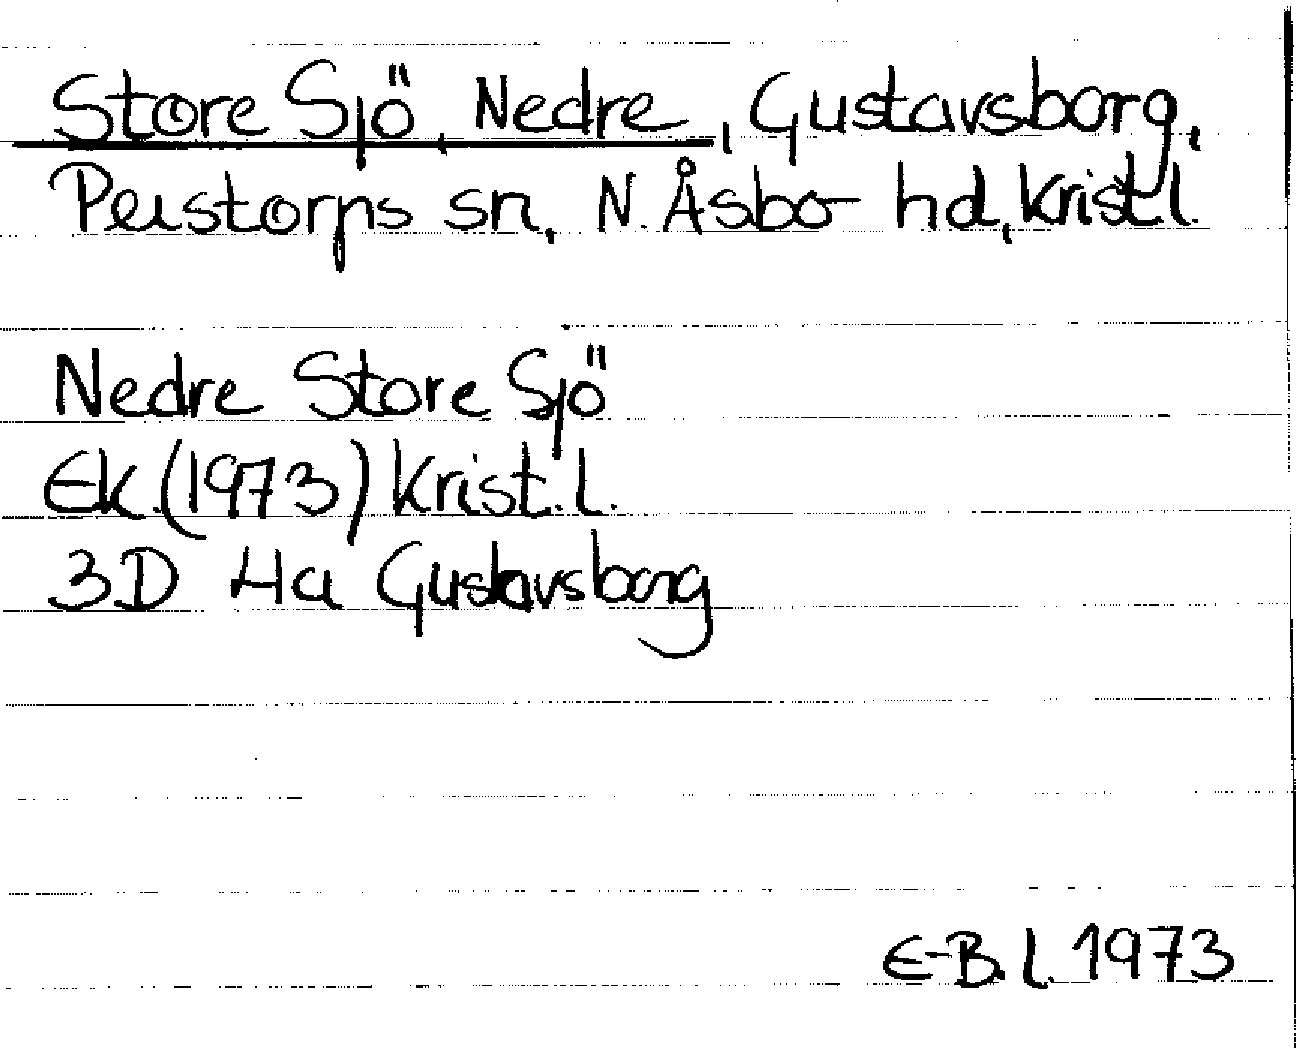 Store Sjö, Nedre, Gustavsborg,
Perstorps sn, N. Åsbo hd, Krist.l.
Nedre Store Sjö
Ek.(1973) Krist.l.
3D 4a Gustavsborg
E-B.L. 1973